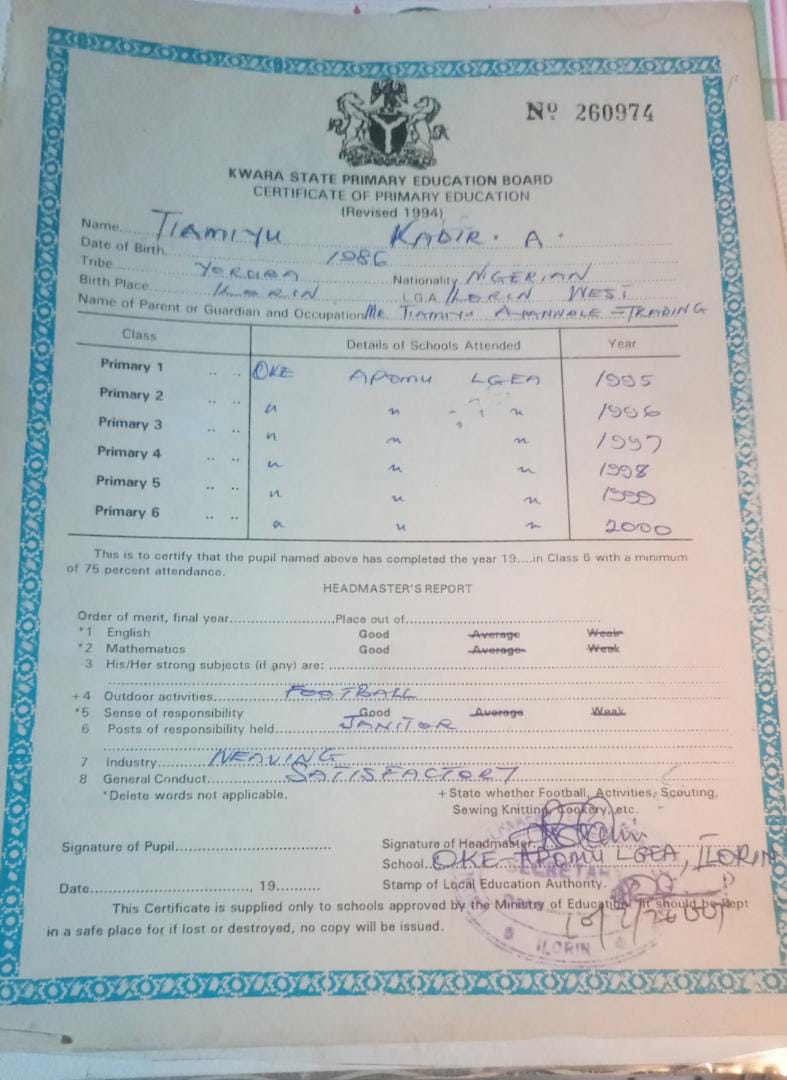 Nº 260974
KWARA STATE PRIMARY EDUCATION BOARD
CERTIFICATE OF PRIMARY EDUCATION
(Revised 1994)
Name TIAMIYU KADIR. A.
Date of Birth 1986
Tribe YORUBA Nationality NIGERIAN
Birth Place ILORIN L.G.A. ILORIN WEST
Name of Parent or Guardian and Occupation Mr. TIAMIYU AYANWALE = TRADING
Class Details of Schools Attended Year
Primary 1 .. .. OKE APOMU LGEA 1995
Primary 2 .. .. " " " 1996
Primary 3 .. .. " " " 1997
Primary 4 .. .. " " " 1998
Primary 5 .. .. " " " 1999
Primary 6 .. .. " " " 2000
This is to certify that the pupil named above has completed the year 19....in Class 6 with a minimum
of 75 percent attendance.
HEADMASTER'S REPORT
Order of merit, final year..................Place out of..................
*1 English Good Average Weak
*2 Mathematics Good Average Weak
3 His/Her strong subjects (if any) are: ..................
+4 Outdoor activities FOOTBALL
*5 Sense of responsibility Good Average Weak
6 Posts of responsibility held JANITOR
7 Industry WEAVING
8 General Conduct SATISFACTORY
*Delete words not applicable. + State whether Football, Activities, Scouting,
Sewing Knitting, Cookery, etc.
Signature of Pupil.................. Signature of Headmaster
School OKE-APOMU LGEA, ILORIN
SECRETARY
Date.................., 19.......... Stamp of Local Education Authority.
This Certificate is supplied only to schools approved by the Ministry of Education. It should be kept
in a safe place for if lost or destroyed, no copy will be issued.
ILORIN